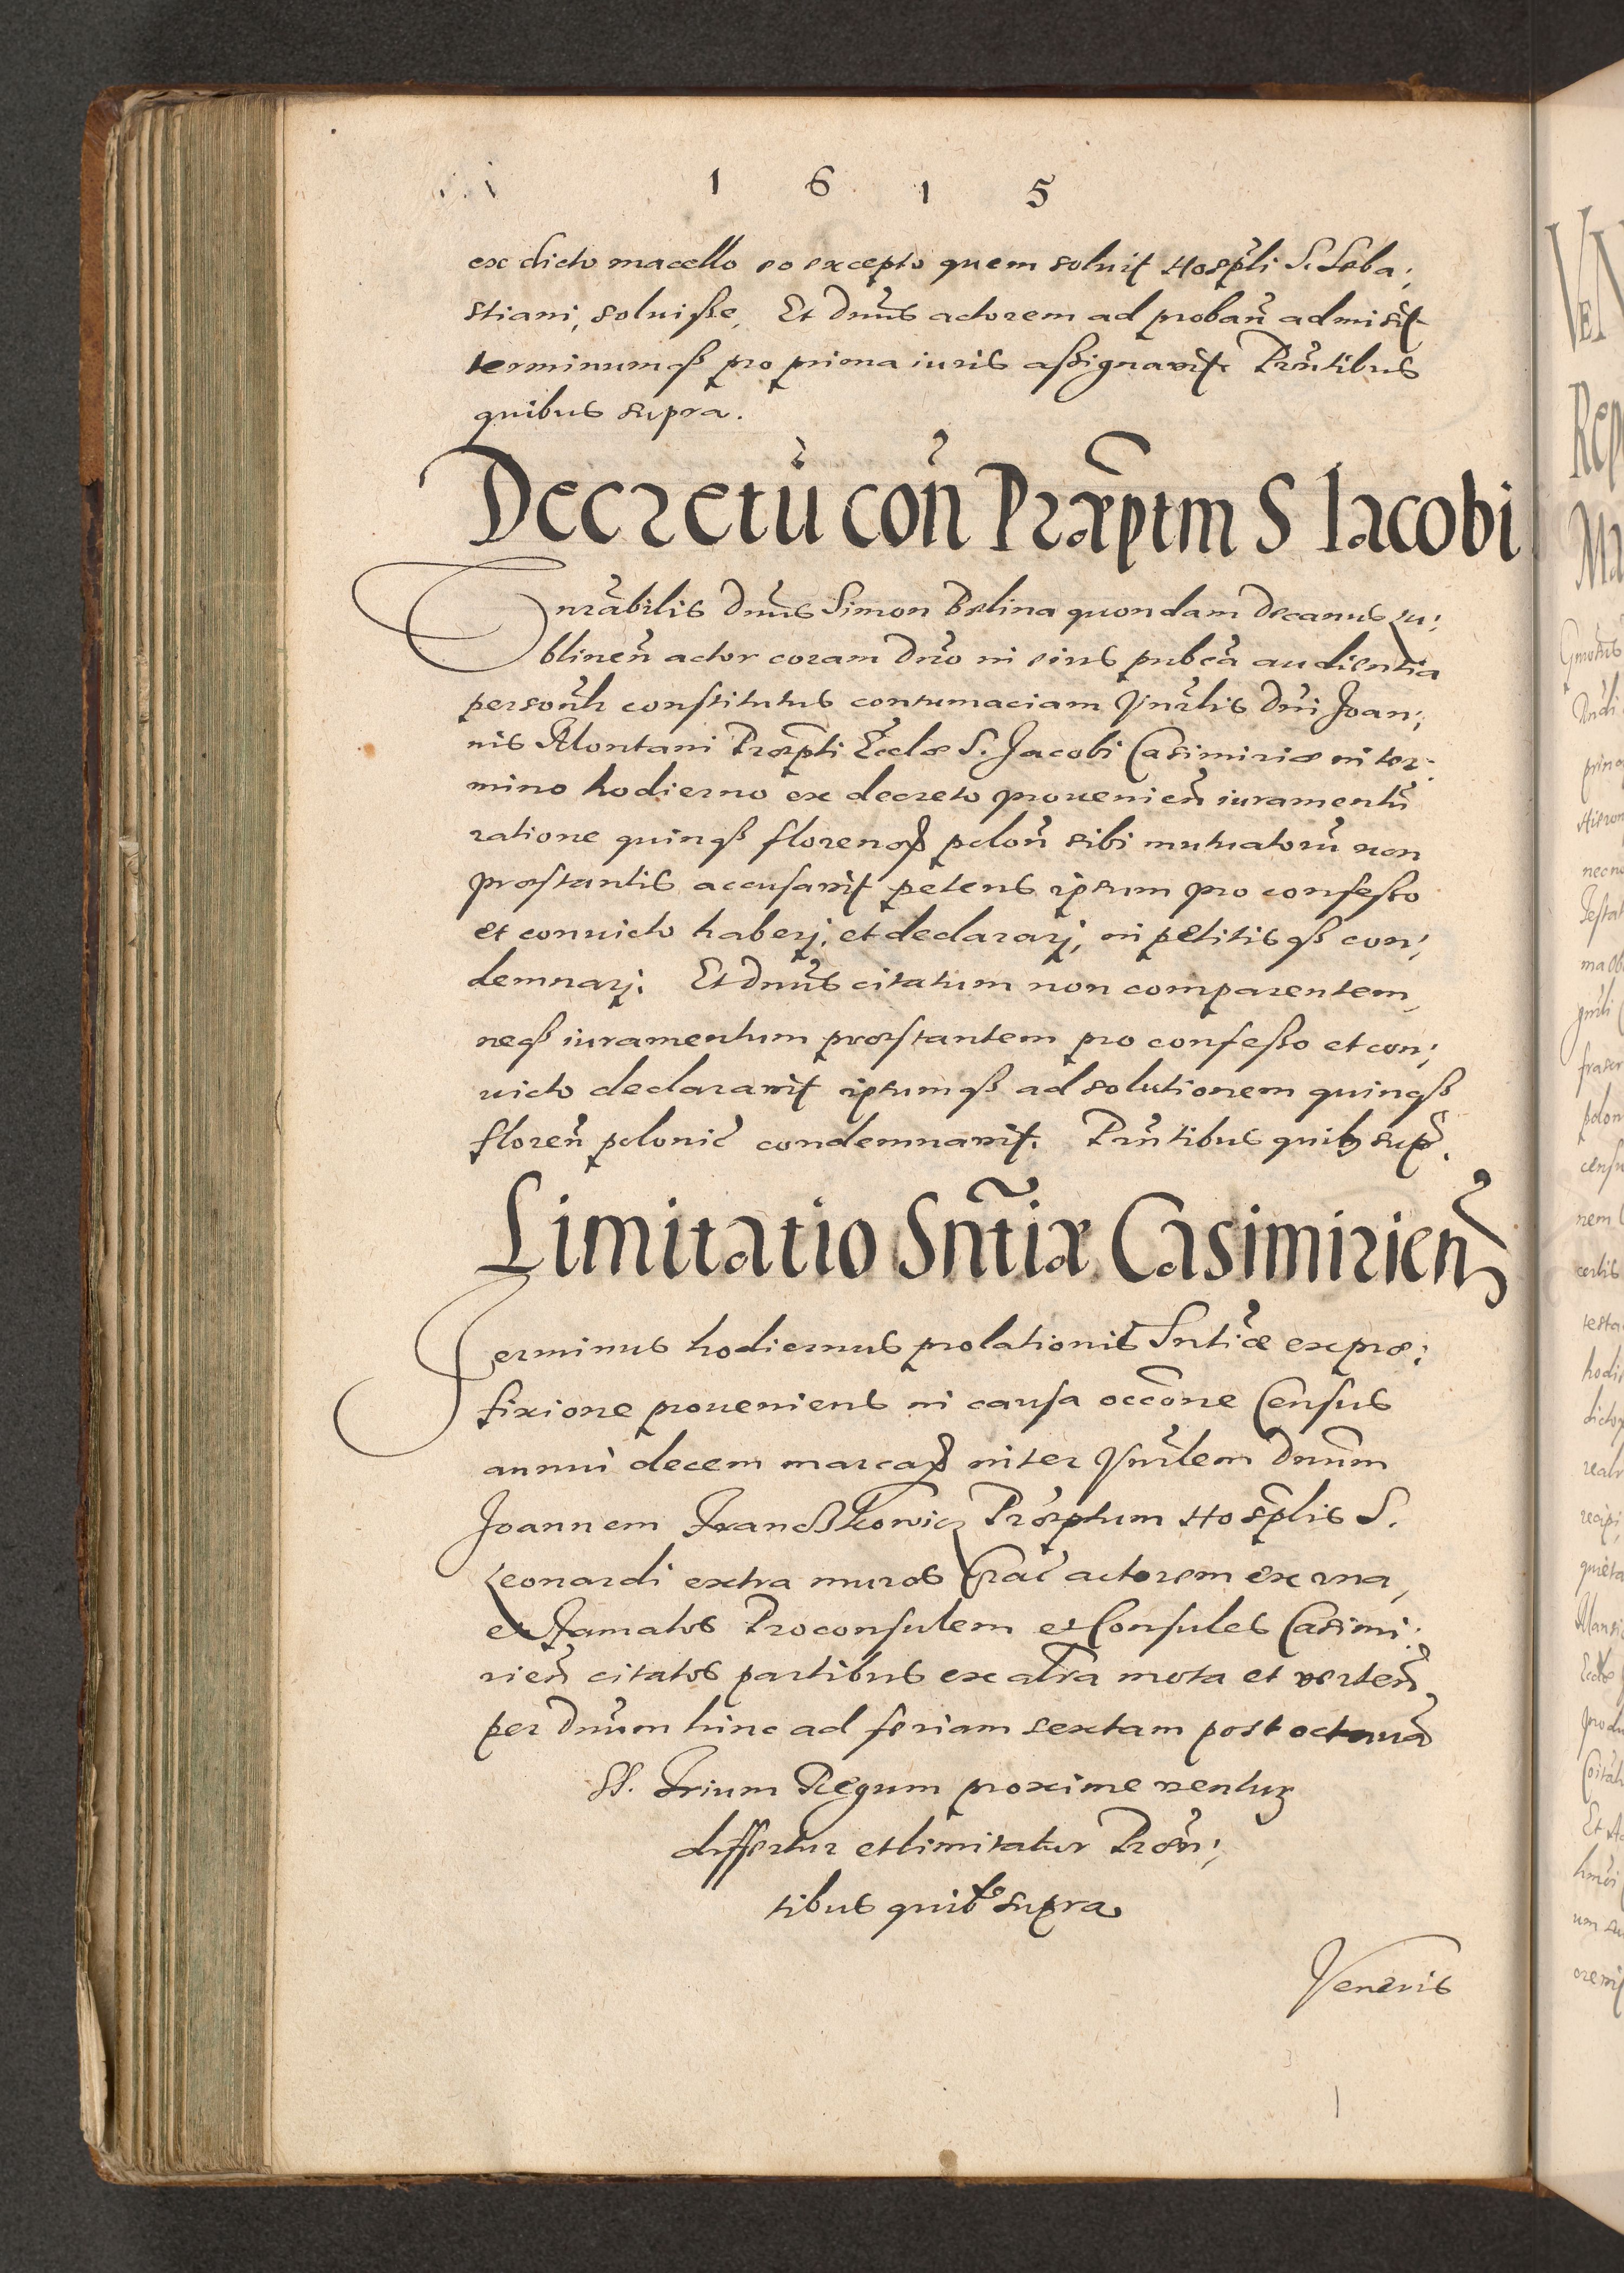 1 6 1 5
ex dicto macello eo excepto quem soluit Hosp̃li S. Seba;
stiani, soluiße, Et Dnũs actorem ad proban̄ admisit
terminumqß pro prima iuris aßignavit. Prñtibus
quibus supra.
Decretũ con̄ Præp̃tm S Iacobi
nr̃abilis Dnũs Simon Belina quondam Decanus Lu;
blinen̄ actor coram Dño in eius pubcã audientia
personl̃r constitutus contumaciam Vnr̃lis Dñi Joan;
nis Montani Præp̃ti Eccl̃æ S. Jacobi Casimiriæ in ter;
mino hodierno ex decreto prouenien̄ iuramentũ
ratione quinqß florenoꝝ polon̄ sibi mutuatorũ non
præstantis accusavit petens ipsum pro confeßo
et conuicto haberj, et declararj, in petitisqß con;
demnarj. Et Dnũs citatum non comparentem,
neqß iuramentum præstantem pro confeßo et con;
uicto declaravit ipsumqß ad solutionem quinqß
floren̄ polonic̃ condemnavit. Prñtibus quibꝫ sup̃.
Limitatio Sñtiæ Casimirien̄
Terminus hodiernus prolationis Sntĩæ ex præ;
fixione proueniens in causa occõne Census
annui decem marcaꝝ inter Vnr̃lem Dnũm
Joannem Franckowicz Præp̃tum Hosp̃lis S.
Leonardi extra muros Crac̃ actorem ex vna,
et Famatos Proconsulem et Consules Casimi;
rien̄ citatos partibus ex altr̃a mota et verten̄,
per Dnũm hinc ad feriam sextam post octauã
SS. Trium Regum proxime ventuꝝ
differtur et limitatur Præñ;
tibus quibꝰ supra
Veneris